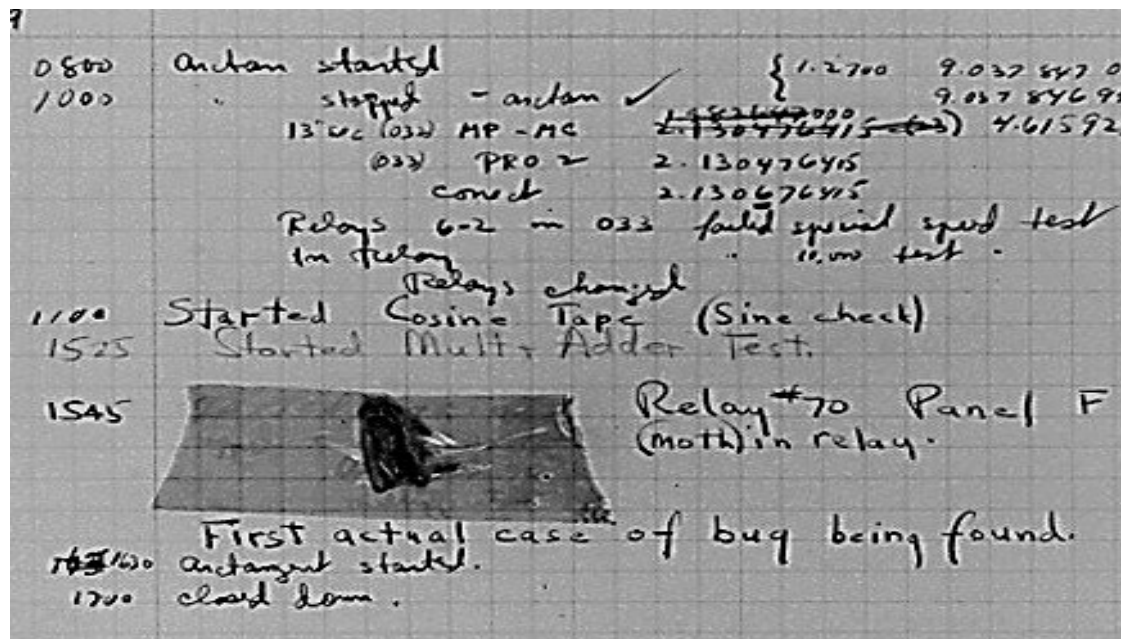 9
0800 Antan started { 1.2700 9.037 847 0
1000 " stopped - antan ✓ 9.037 846 99
13"uc (032) MP - MC 2.130476415 4.61592
(033) PRO 2 2.130476415
conect 2.130676415
Relays 6-2 in 033 failed special speed test
In Relay " 10,000 test .
Relays changed
1100 Started Cosine Tape (Sine check)
1525 Started Mult + Adder Test.
1545 Relay #70 Panel F
(moth) in relay.
First actual case of bug being found.
1630 Antangent started.
1700 closed down.